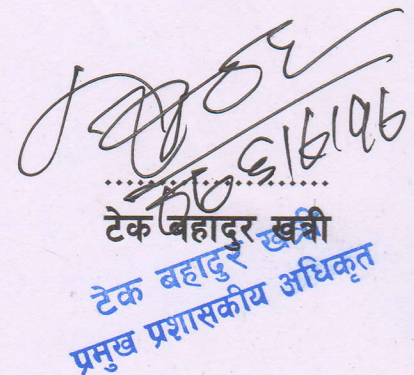 टेक बहादुर खत्री
टेक बहादुर खत्री
प्रमुख प्रशासकीय अधिकृत